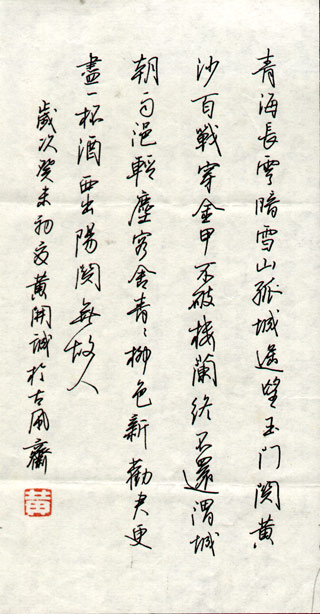 青海長雲暗雪山孤城遥望玉门関黄
沙百戰穿金甲不破楼蘭终不還渭城
朝雨浥輕塵客舍青々柳色新勸君更
盡一杯酒西出陽関無故人
歲次癸未初夏黄開誠於古風齋
黄